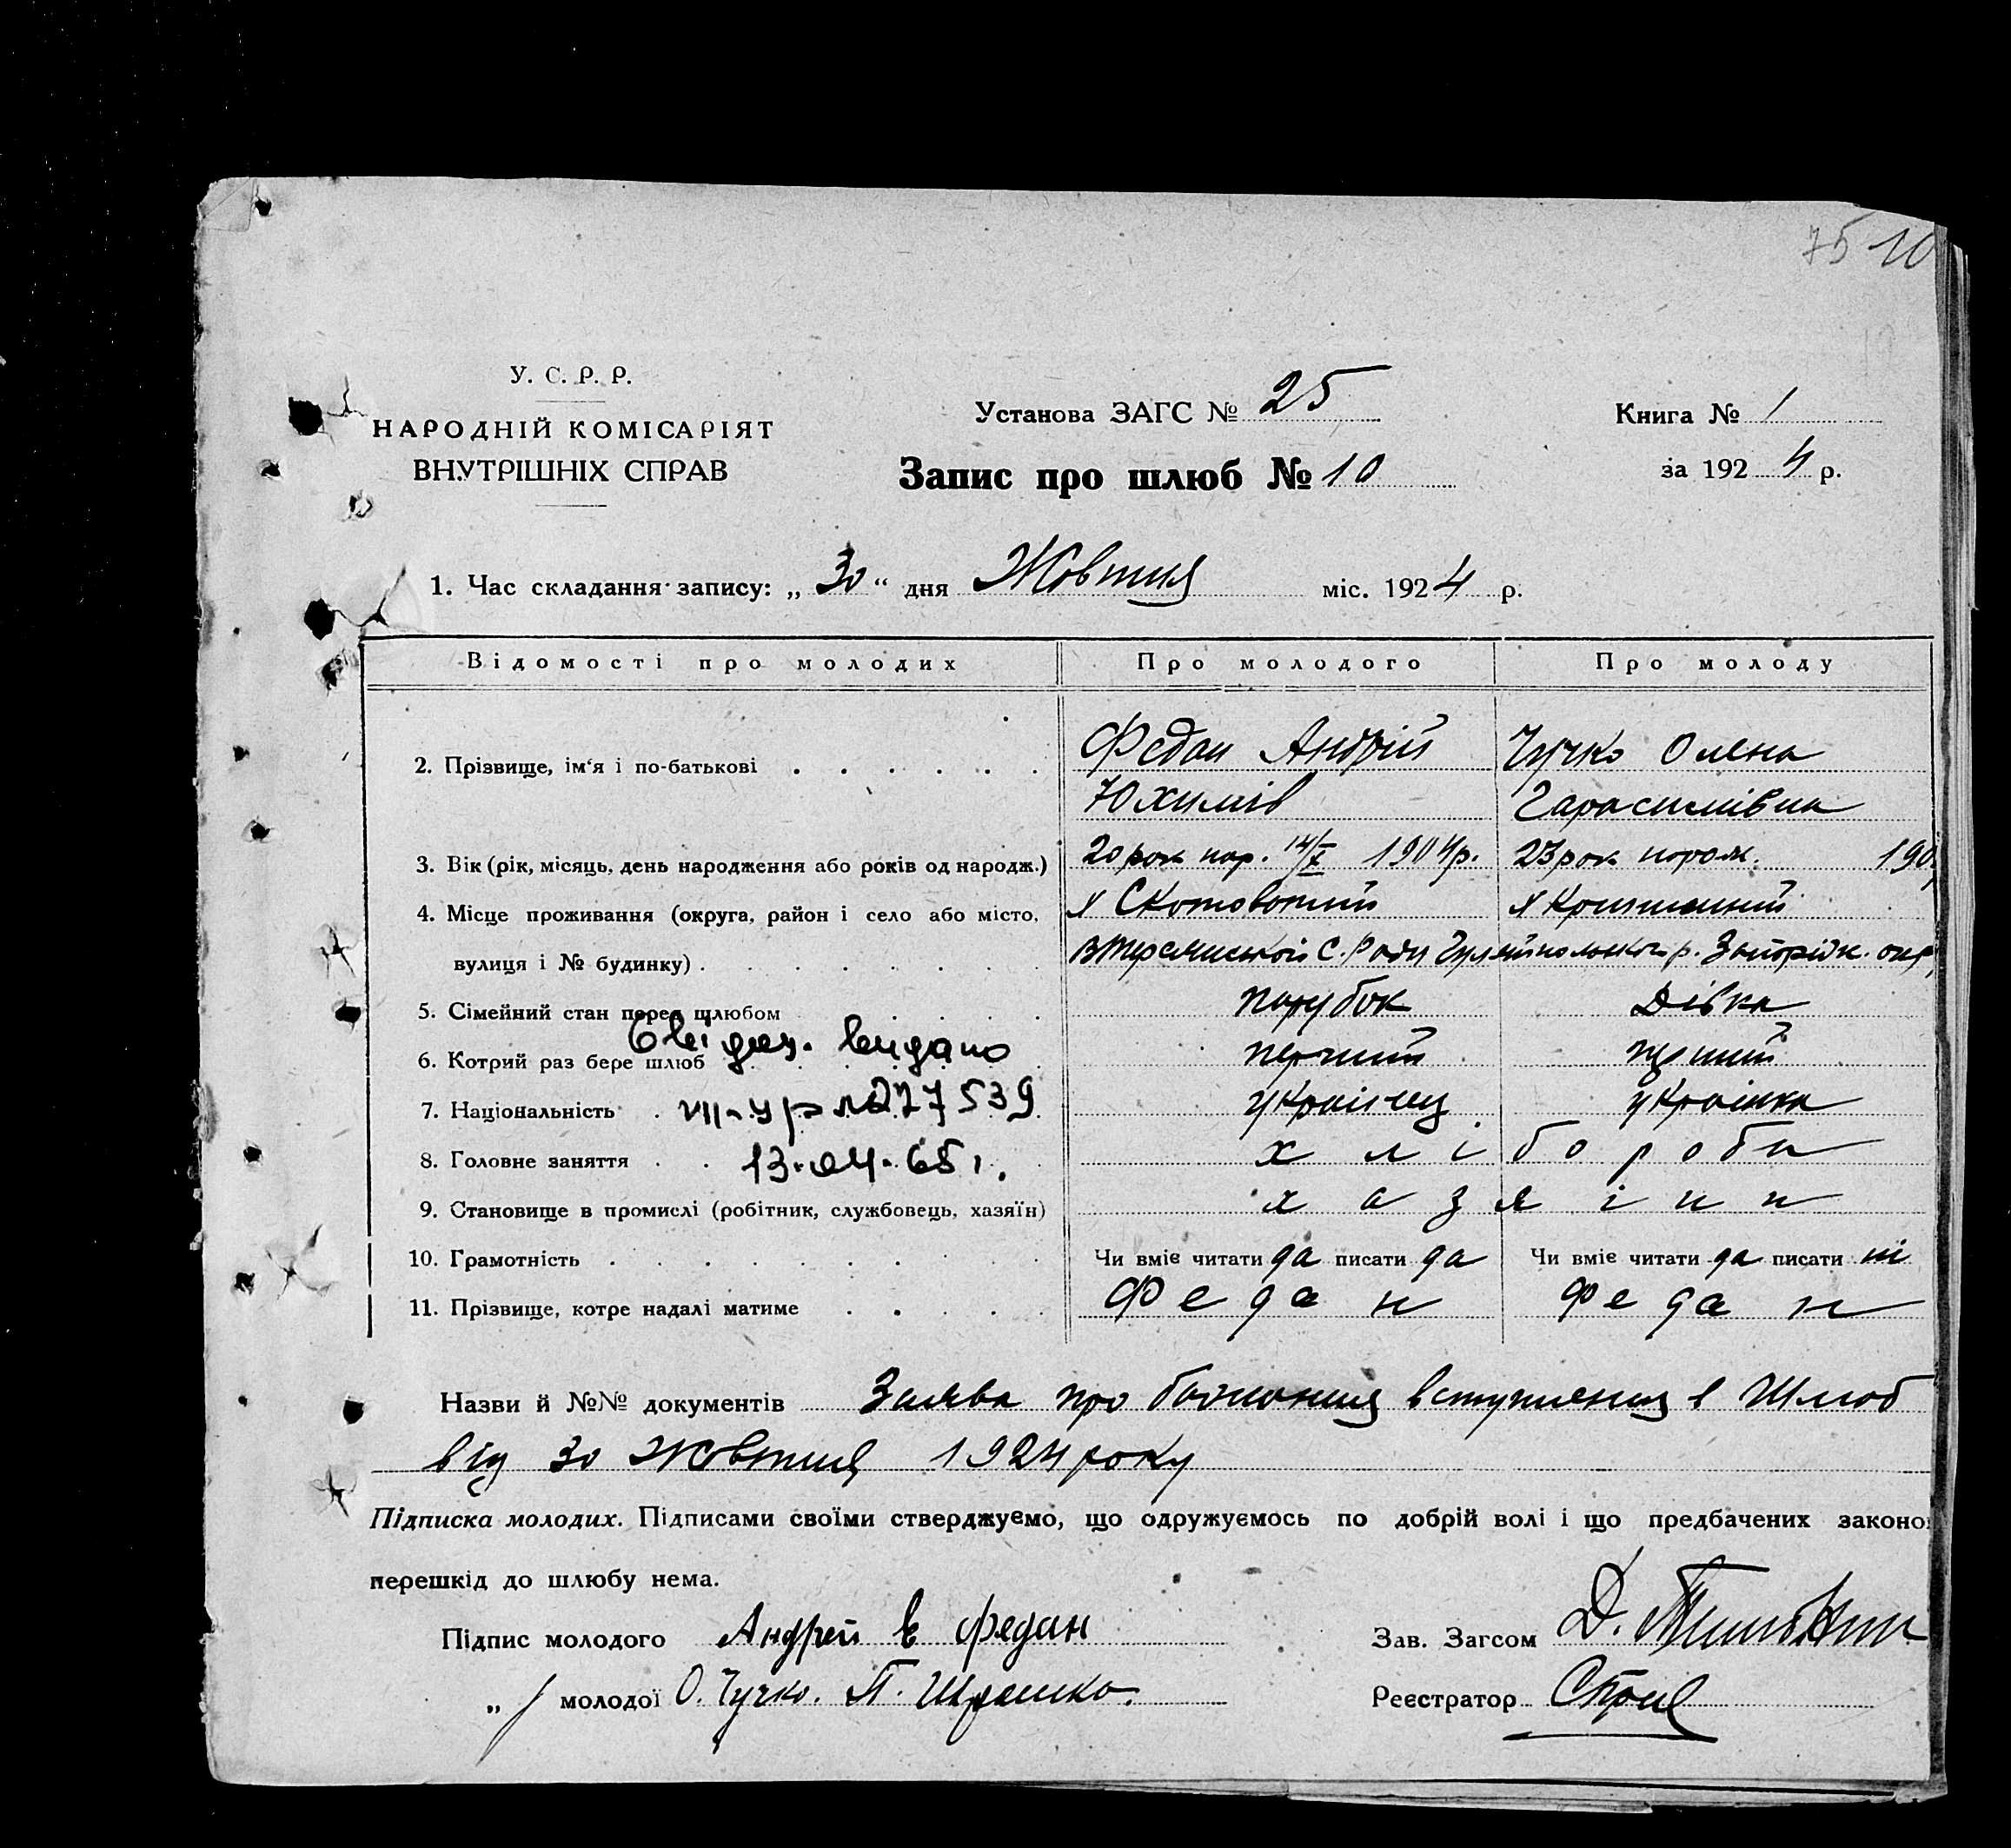 75 10
У. С. Р. Р.
НАРОДНІЙ КОМІСАРІЯТ
ВНУТРІШНІХ СПРАВ
Установа ЗАГС № 25
Книга № 1
Запис про шлюб № 10
за 1924 р.
1. Час складання запису: „30“ дня Жовтня міс. 1924 р.
Відомості про молодих Про молодого Про молоду
2. Прізвище, ім'я і по-батькові Федан Андрій Чучко Олена
Юхимів Гарасимівна
3. Вік (рік, місяць, день народження або років од народж.) 20 рок нар. 14/X 1904р. 23 рок 190
4. Місце проживання (округа, район і село або місто, х х
вулиця і № будинку) С. Ради р. окр
5. Сімейний стан перед шлюбом парубок дівка
6. Котрий раз бере шлюб перший перший
Свідоц. видано
7. Національність українец українка
VII-УР №277539
8. Головне заняття хлібороби
13.04.65 г.
9. Становище в промислі (робітник, службовець, хазяїн) хазяіни
10. Грамотність Чи вміє читати да писати да Чи вміє читати да писати ні
11. Прізвище, котре надалі матиме Федан Федан
Назви й №№ документів Заява про бажання вступлення в Шлюб
від 30 Жовтня 1924 року
Підписка молодих. Підписами своїми стверджуємо, що одружуємось по добрій волі і що предбачених законо
перешкід до шлюбу нема.
Підпис молодого Андрей Е Федан
Зав. Загсом Д.
„ молодої О. Чучко. П.
Реєстратор